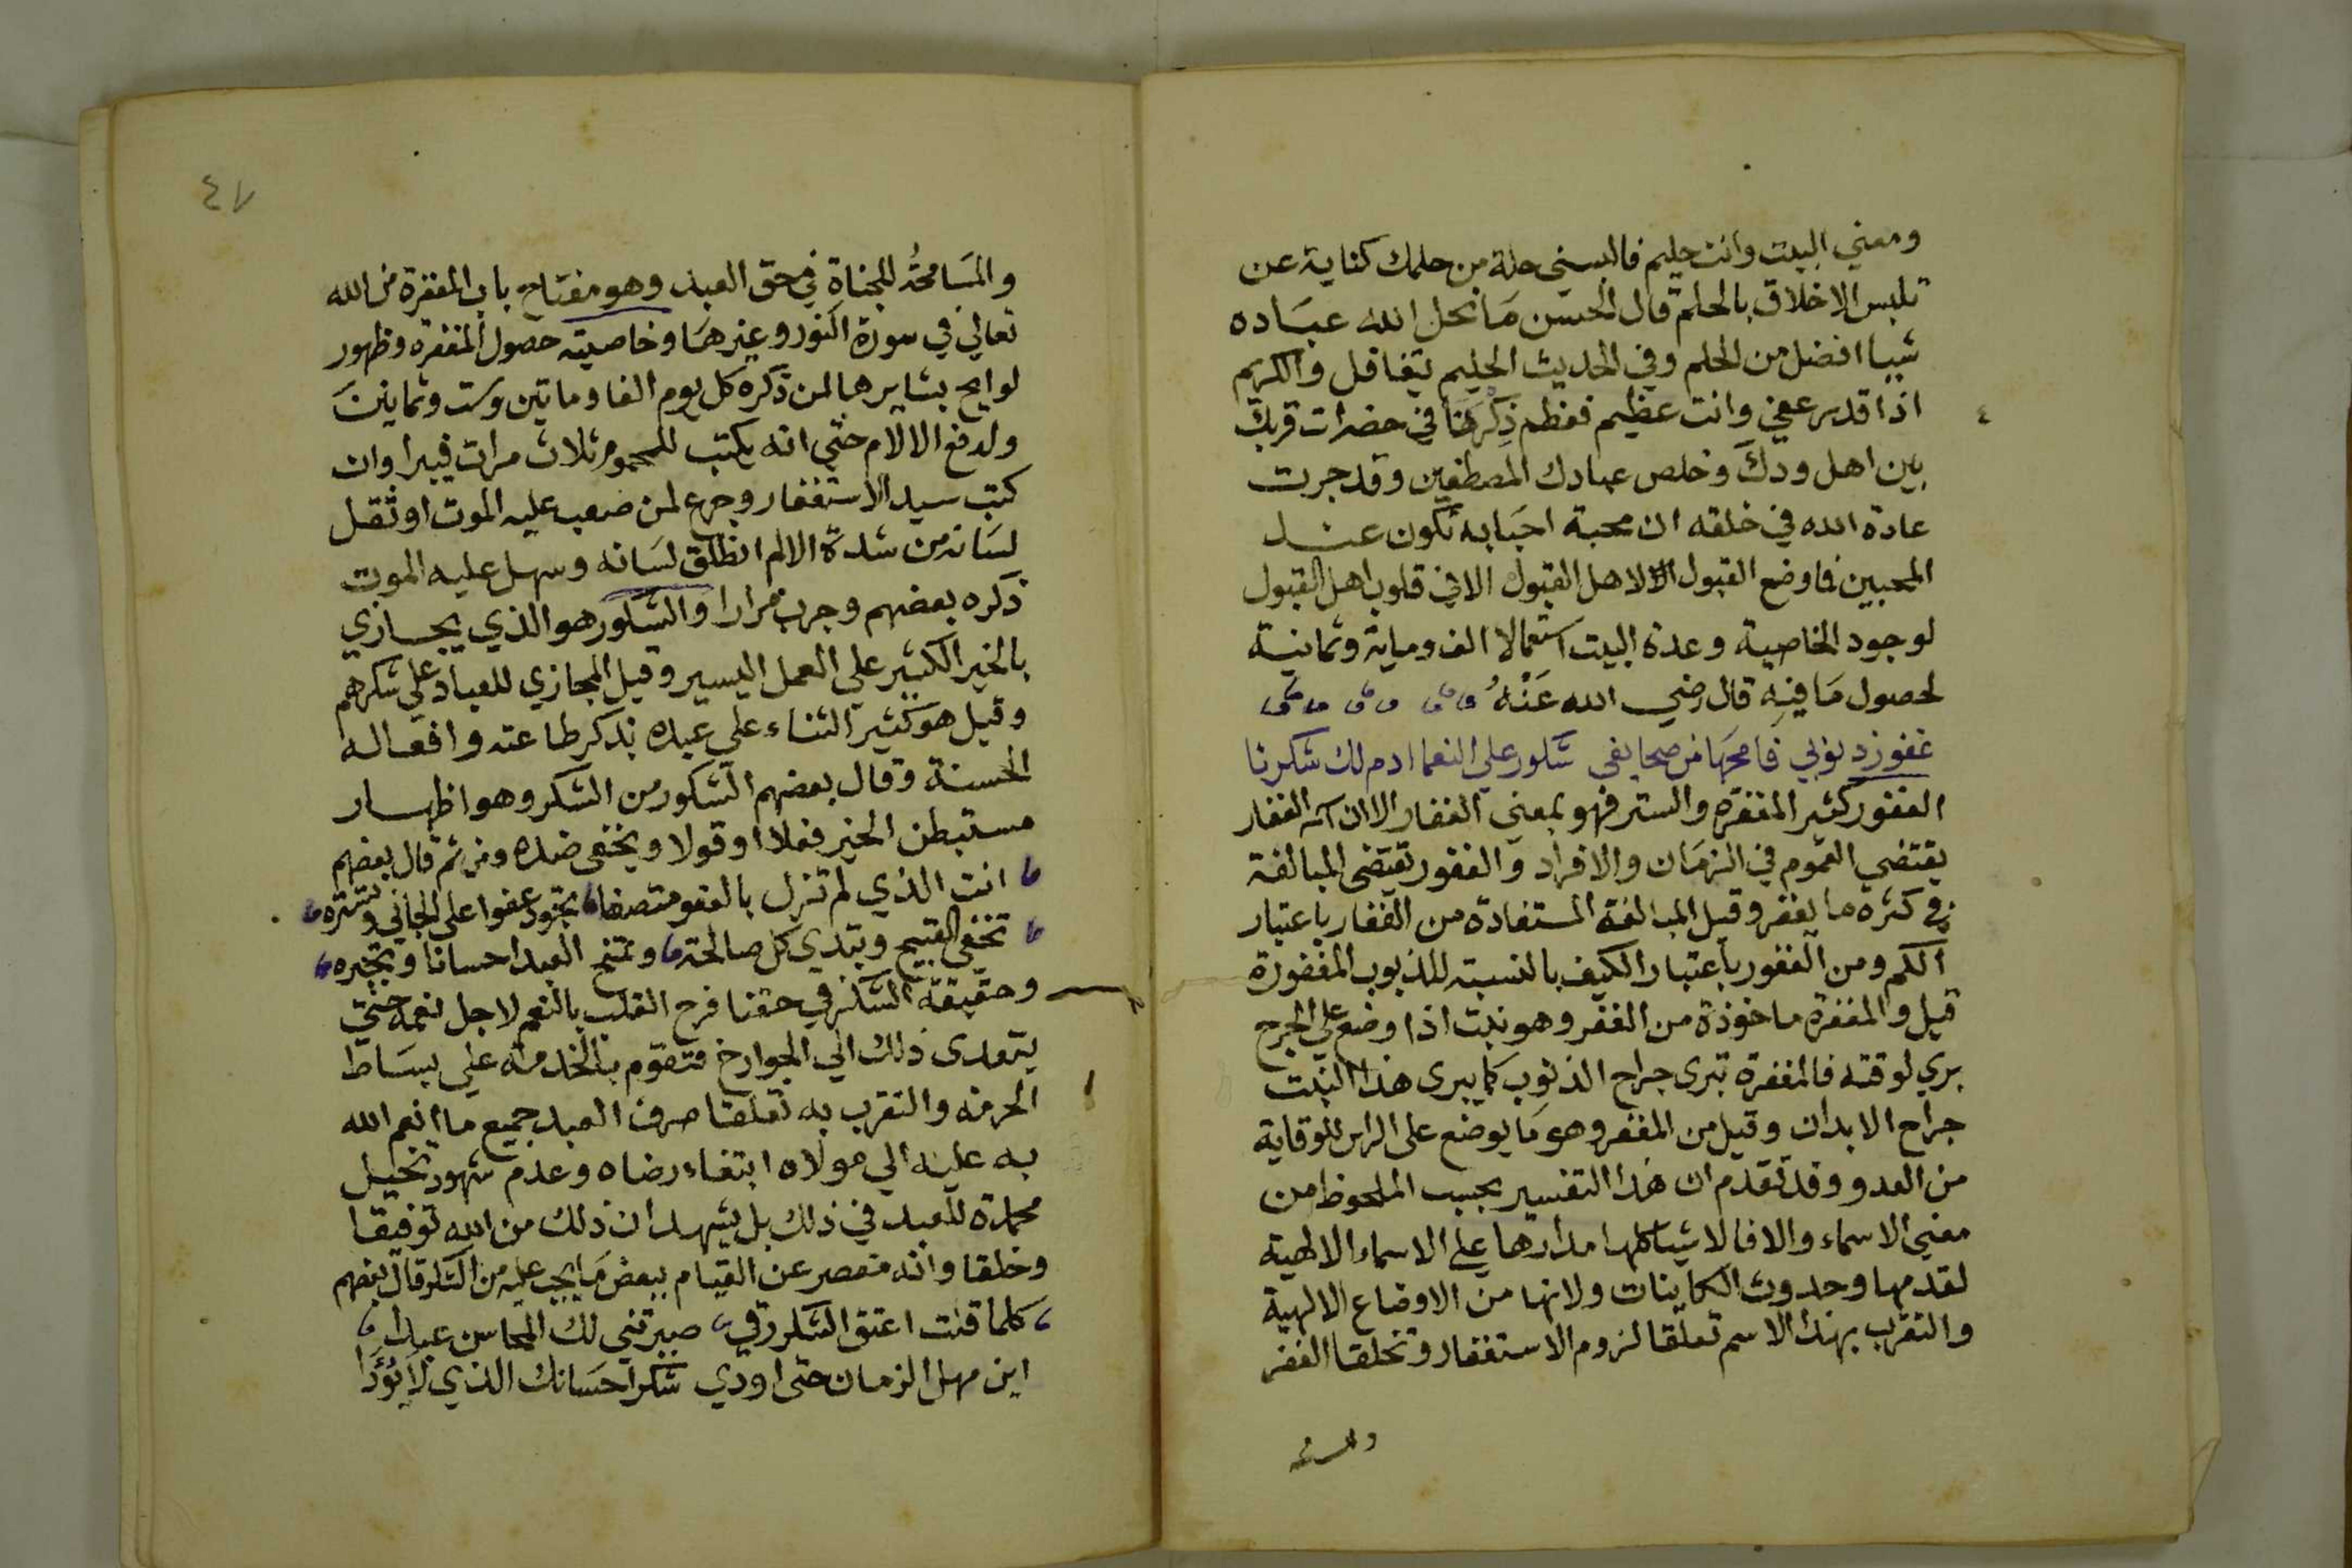 ومعني البيت وانت حليم فالبسني حلة من حلمك كناية عن
تلبس الاخلاق بالحلم قال الحسن مَا نحل الله عبَاده
شيا افضل من الحلم وفي الحديث الحليم يتغافل والكريم
اذا قدر عفي وانت عظيم فعظم ذِكْرنَا في حضرات قربك
بين اهل ودكَ وخلص عبادك المصطفين وقد جرت
عادة الله في خلقه ان محبة احبَابه تكون عند
المحبين فما وضع القبول لاهل القبول الا في قلوب اهل القبول
لوجود الخاصية وعدة البيت استعمالا الف وماية وثمانية
لحصول مَا فيهِ قال رضي الله عَنْهُ
غفور ذنوبي فامحهَا من صحايفي شكور علي النعما ادم لك شكرنا
الغفور كثير المغفرة والستر فهو بمعني الغفار الا ان اسم الغفار
يقتضي العموم في الزمَان والافراد والغفور يقتضي المبالغة
في كثرة ما يغفر وقيل المبالغة المستفادة من الغفار باعتبار
الكم ومن الغفور باعتبار الكيف بالنسبة للذنوب المغفورة
قيل والمغفرة ماخوذة من الغفر وهو نبت اذا وضع علي الجرح
بري لوقته فالمغفرة تبري جراح الذنوب كما يبري هذا النبت
جراح الابدان وقيل من المغفر وهو مَا يوضع على الراس للوقاية
من العدو وقد تقدم ان هذا التفسير بحسب الملحوظ من
معني الاسماء والا فالاشيا كلها مدارها علي الاسماء الالهية
لقدمها وحدوث الكاينات ولانها من الاوضاع الالهية
والتقرب بهذا الاسم تعلقا لزوم الاستغفار وتخلقا الغفر
٤٧
والمسَامحةُ للجناة في حق العبد وهو مفتاح باب المغفرة من الله
تعالي في سورة النور وغيرهَا وخاصيته حصول المغفرة وظهور
لوايح بشايرها لمن ذكره كل يوم الفا ومايتين وست وثمانينَ
ولدفع الالام حتي انه يكتب للمحموم ثلاث مرات فيبرا وان
كتب سيد الاستغفار وجرع لمن صعب عليه الموت او ثقل
لسَانه من شدة الالم انطلق لسَانه وسهل عليه الموت
ذكره بعضهم وجرب مرارا والشكور هو الذي يجازي
بالخير الكثير علي العمل اليسير وقيل المجازي للعباد علي شكرهم
وقيل هو كثير الثناء علي عبده بذكر طاعته وافعاله
الحسنة وقال بعضهم الشكور من الشكر وهو اظهار
مستبطن الخير فعلا او قولا ويخفى ضده ومن ثم قال بعضهم
انت الذي لم تزل بالعفو متصفا تجود عفوا على الجاني وتستره
تخفى القبيح وتبدي كل صالحة وتمنح العبد احسانا وتجبره
وحقيقة الشكر في حقنا فرح القلب بالنعم لاجل نعمه حتي
يتعدى ذلك الي الجوارح فتقوم بالخدمة علي بسَاط
الحرمة والتقرب به تعلقا صرف العبد جميع ما انعم الله
به عليه الي مولاه ابتغاء رضاه وعدم شهود تخيل
محمدة للعبد في ذلك بل يشهد ان ذلك من الله توفيقا
وخلقا وانه مقصر عن القيام ببعض مَا يجب عليه من الشكر قال بعضهم
كلما قلت اعتق الشكر رقي صيرتني لك المحاسن عبدا
اين مهل الزمان حتى اودي شكر احسَانك الذي لا يُؤدا